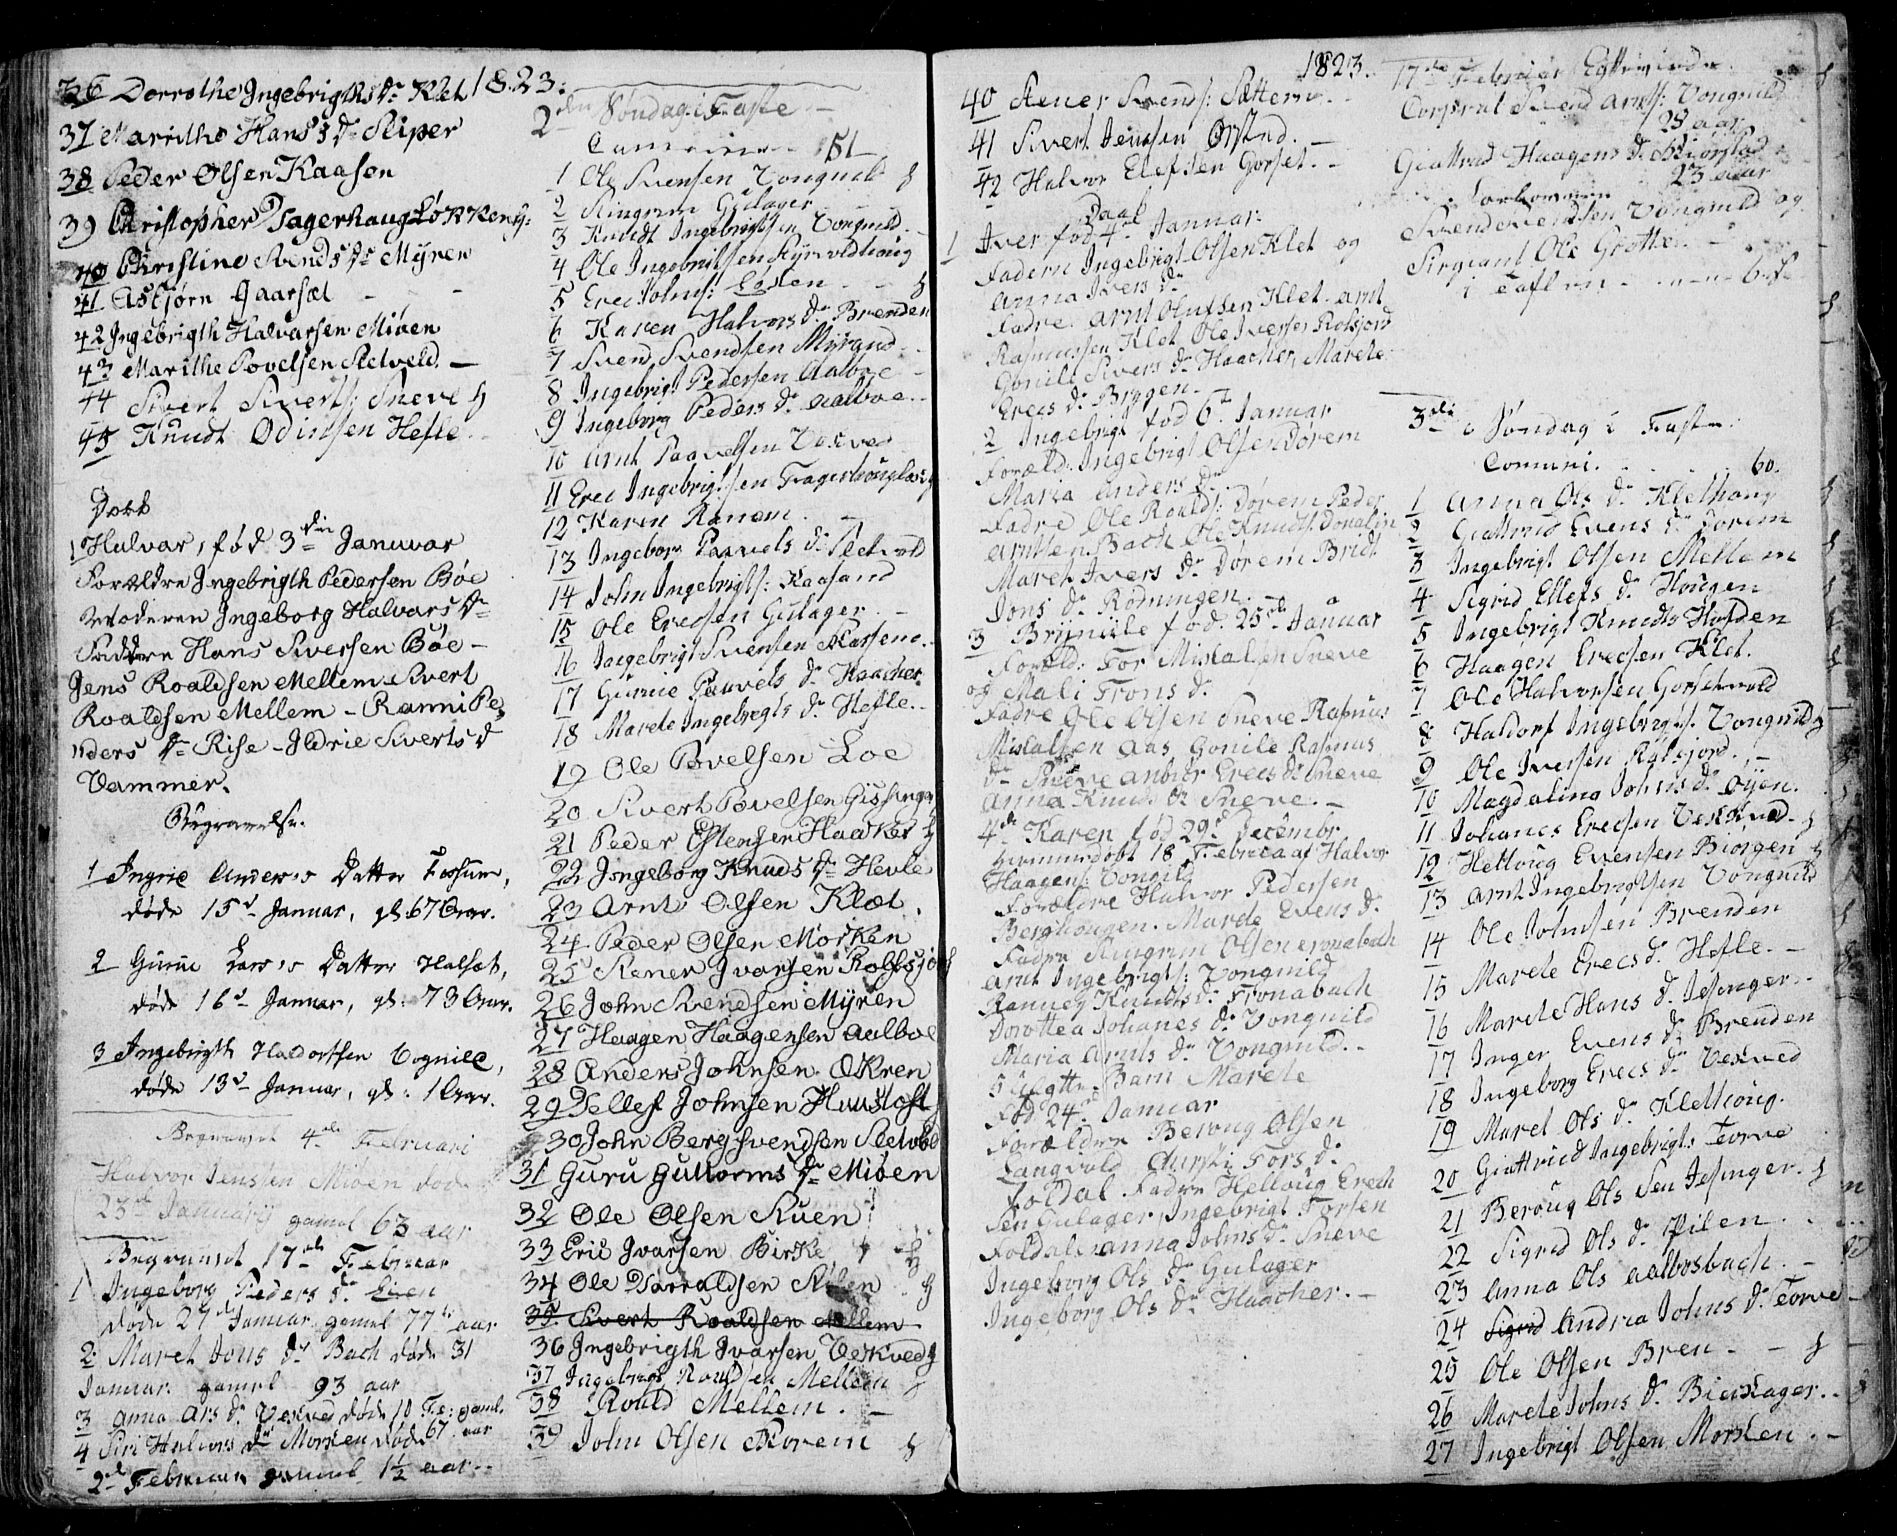 1823.
36 Dorrothe Ingebrigths Dr Klet
37 Marrithe Hans's Dr Skiper
38 Peder Olsen Kaasen
39 Christopher Fagerhaug Løkken
40 Christine Svends Dr Myren
41 Asbjørn Gaarsæt
42 Ingebrigth Halvarsen Miøen
43 Marithe Povelsen Sletvold
44 Sivert Siverts: Sneve
45 Knudt Odinsen Hefle
Døbt
1 Halvar, fød 3die Januvar
Forældre Ingebrigth Pedersen Bøe
Moderen Ingeborg Halvars Dr
Faddere Hans Siversen Bøe
Jens Roaldsen Mellem Sivert
Roaldsen Mellem - Ranni Pe
ders Dr Rise - Ildrie Siverts D
Vammer.
Begravelse.
1 Ingrie Anders Datter Fossum,
døde 15d Januar, gl. 67 Aar.
2 Gurue Lars's Datter Halsæt,
døde 16d Januar, gl: 73 Aar.
3 Ingebrigth Haldorsen Vognild,
døde 13d Januar, gl: 1 Aar.
Begravet 4de Februari
Halvor Jensen Miøen døde
23de Januarij gamel 63 aar
Begravet 17de Februar
1 Ingeborg Peders Dr
døde 27d Januar gamel 77 aar
2 Maret Jons Dr Bach døde 31
Januar gamel 93 aar
3 Anna Ars Dr Veskved døde 10 Fe: gaml.
67 aar
4 Siri Halvors Dr Morken døde
2d Februar gamel 1½ aar
2den Søndag i Faste
51
1 Ole Svensen Vongnild
2 Ringrim Gulager
3 Knudt Ingebrigtsen Vongnild
4 Ole Ingebrigtsen
5 Erec Johns:
6 Karen Halvors Dr Brenden
7 Sven Svendsen Myrand
8 Ingebrigt Pedersen Aalboe
9 Ingeborg Peders Dr Aalboe
10 Arnt Paavelsen Veskved
11 Erec Ingebrigtsen
12 Karen Ranem
13 Ingebor Paavels Dr Sletvold
14 John Ingebrigts: Kaasand
15 Ole Erecsen Gulager
16 Ingebrigt Svensen
17 Gurue Paavels Dr Haacher
18 Marete Ingebregts Dr Hefle
19 Ole Povelsen Loe
20 Sivert Povelsen Gissinger
21 Peder Estensen Haaker
22 Ingeborg Knuds Dr Hevle
23 Arnt Olsen Klæt
24 Peder Olsen Morken
25 Stener Ivarsen Rolfsjor
26 John Svendsen Myren
27 Haagen Haagensen Aalboe
28 Anders Johnsen Økren
29 Tellef Johnsen Huustoft
30 John Bergsvendsen Sletvold
31 Guru Guttorms Dr Miøen
32 Ole Olsen Stuen
33 Eric Ivarsen Birke
34 Ole Svaraldsen
35 Sivert Roaldsen Mellem
36 Ingebrigth Ivarsen Veskved
37 Ingebrigt Roaldsen Mellem
38 Roald Mellem
39 John Olsen
1823.
40 Stener Svends: Sættern
41 Sivert Jensen
42 Halvor Elefsen Gorset
Daab
1 Iver fød 4de Januar:
Fadern Ingebrigt Olsen Klet og
Anna Ivers Dr
Fadre Arnt Olufsen Klet Arnt
Rasmussen Klet Ole Iversen Rotsjord
Gonile Sivers Dr Haacher, Marete
Erecs Dr Bryggen
2 Ingebrigt fød 6te Januar
Foræld: Ingebrigt Olsen Dørem
Maria Anders Dr
Fadre Ole Roald: Dørem Peder
Arntsen Bach Ole Knudts:
Maret Ivers Dr Dørem Bridt
Jons Dr Rodningen
3 Brynille fød 25de Januar
Foreld: For Mikalsen Sneve
og Mali Frons Dr
Fadre Ole Olsen Sneve Rasmus
Mikalsen Aas Gonile Rasmus
Dr Sneve Anbior Erecs Dr Sneve
Anna Knuds Dr Sneve
4de Karen fød 29d Decembr
hiemmedøbt 18 Februa af Halvor
Haagens: Vongild
Forældre Halvor Pedersen
Berghougen. Marete Evens Dr
Fadre Ringrim Olsen
Arnt Ingebrigts: Vongnild
Ranney Knudts Dr Fronabach
Dorottea Johanes Dr Vongnild
Maria Arnts Dr Vongnild
5 Uægte Barn Marete
Fød 24d Januar
Forældre Beroug Olsen
Langvold Fors Dr
Foldal Fadre Helloug Erech
sen Gulager, Ingebrigt Forsen
Foldal Anna Johns Dr Sneve
Ingeborg Ols Dr Gulager
Ingeborg Ols Dr Haacher
17de Februar Egtevirde
Corpral Svend Arnts: Vongnild
28 aar
Giattrud Haagens Dr
23 aar
Forlovere
Svend Svendsen Vongnild og
Sirgiant Ole Grøtte
3die Søndag i Faste
Comuni. 60.
1 Anna Ols Dr Klethoug
2 Giattrud Evens Dr Dorem
3 Ingebrigt Olsen Mellem
4 Sigrid Ellefs Dr Hougen
5 Ingebrigt Knudts Halden
6 Haagen Erecsen Klet
7 Ole Halvorsen Gorsetvold
8 Haldorf Ingebrigts: Vongnild
9 Ole Iversen Rotsjord
10 Magdalina Johns Dr Øyen
11 Johanes Erecsen Veskved
12 Helloug Evensen Biorgen
13 Arnt Ingebrigtsen Vongnild
14 Ole Johnsen Brenden
15 Marete Erecs Dr Hefle
16 Marete Hans Dr Jesinger
17 Inger Evens Dr Brenden
18 Ingeborg Erecs Dr Veskved
19 Maret Ols Dr Klethoug
20 Giattrud Ingebrigts Torve
21 Beroug Olssen Jesinger
22 Sigrid Ols Dr Pilen
23 Anna Ols Aalbosbach
24 Sigrid Andrea Johns Dr Torve
25 Ole Olsen Bren
26 Marete Johns Dr Bierkager
27 Ingebrigt Olsen Morken